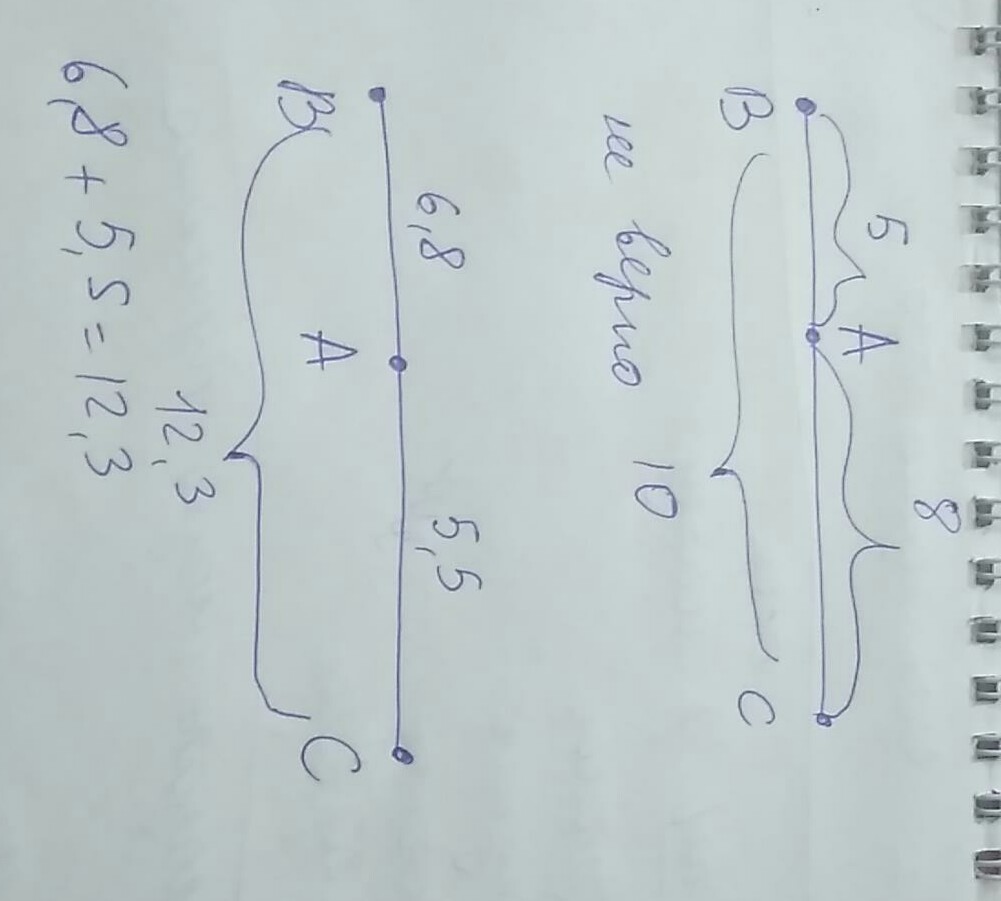 5 8
A
B C
не верно 10
6,8 5,5
A
B C
12,3
6,8 + 5,5 = 12,3